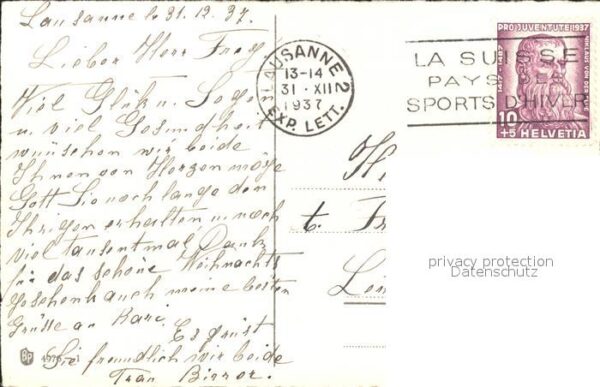 Lausanne le 31.12.37.
Lieber Herr Frey
Viel Glük u. Sege
u. viel Gesundheit
wünschen wir beide
Ihnen von Herzen möge
Gott Sie noch lange den
Ihrigen erhalten, u. noch
viel tausentmal Dank
für das schöne Weihnachts
Geschenk auch meine besten
Grüsse an Karl.
Es grüst
Sie freundlich wir beide
Frau Birrer.
LAUSANNE 2
13-14
31·XII
1937
EXP. LETT.
LA SUISSE
PAYS DES
SPORTS D'HIVER
PRO JUVENTUTE 1937
1417-1487
NIKLAUS VON
10
+5 HELVETIA
H
t. Fr
privacy protection
Datenschutz